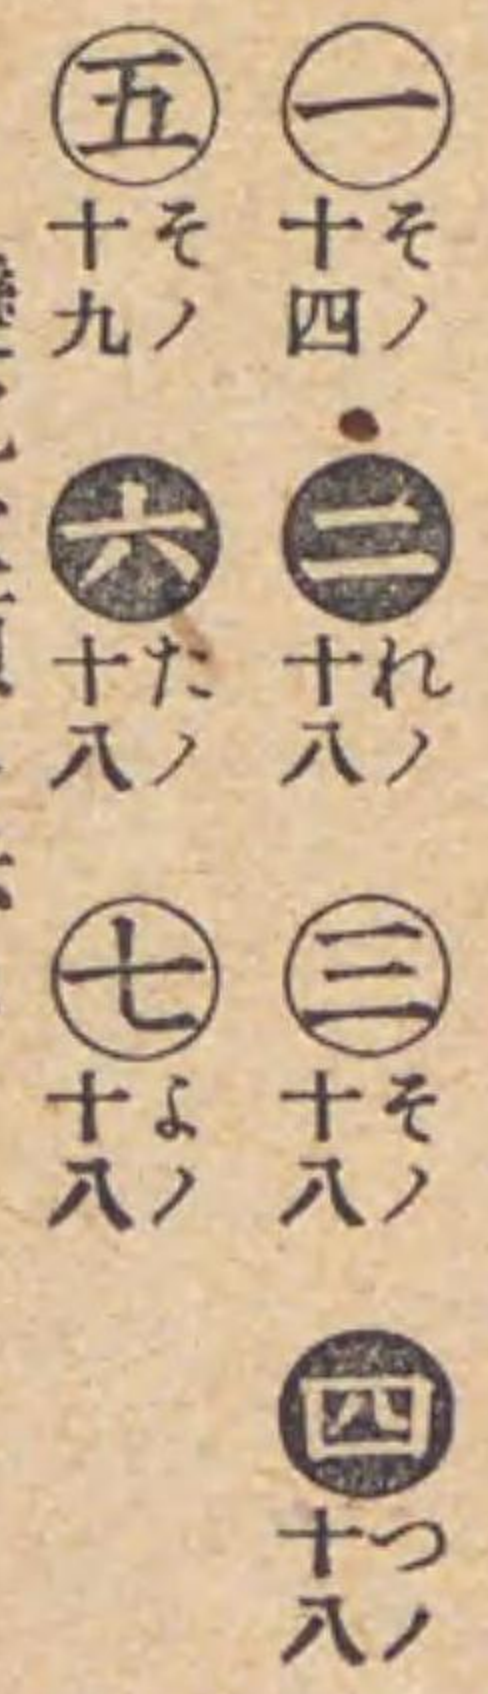 ㊀ そノ十四
㊁ れノ十八
㊂ そノ十八
㊃ つノ十八
㊄ そノ十九
㊅ たノ十八
㊆ よノ十八